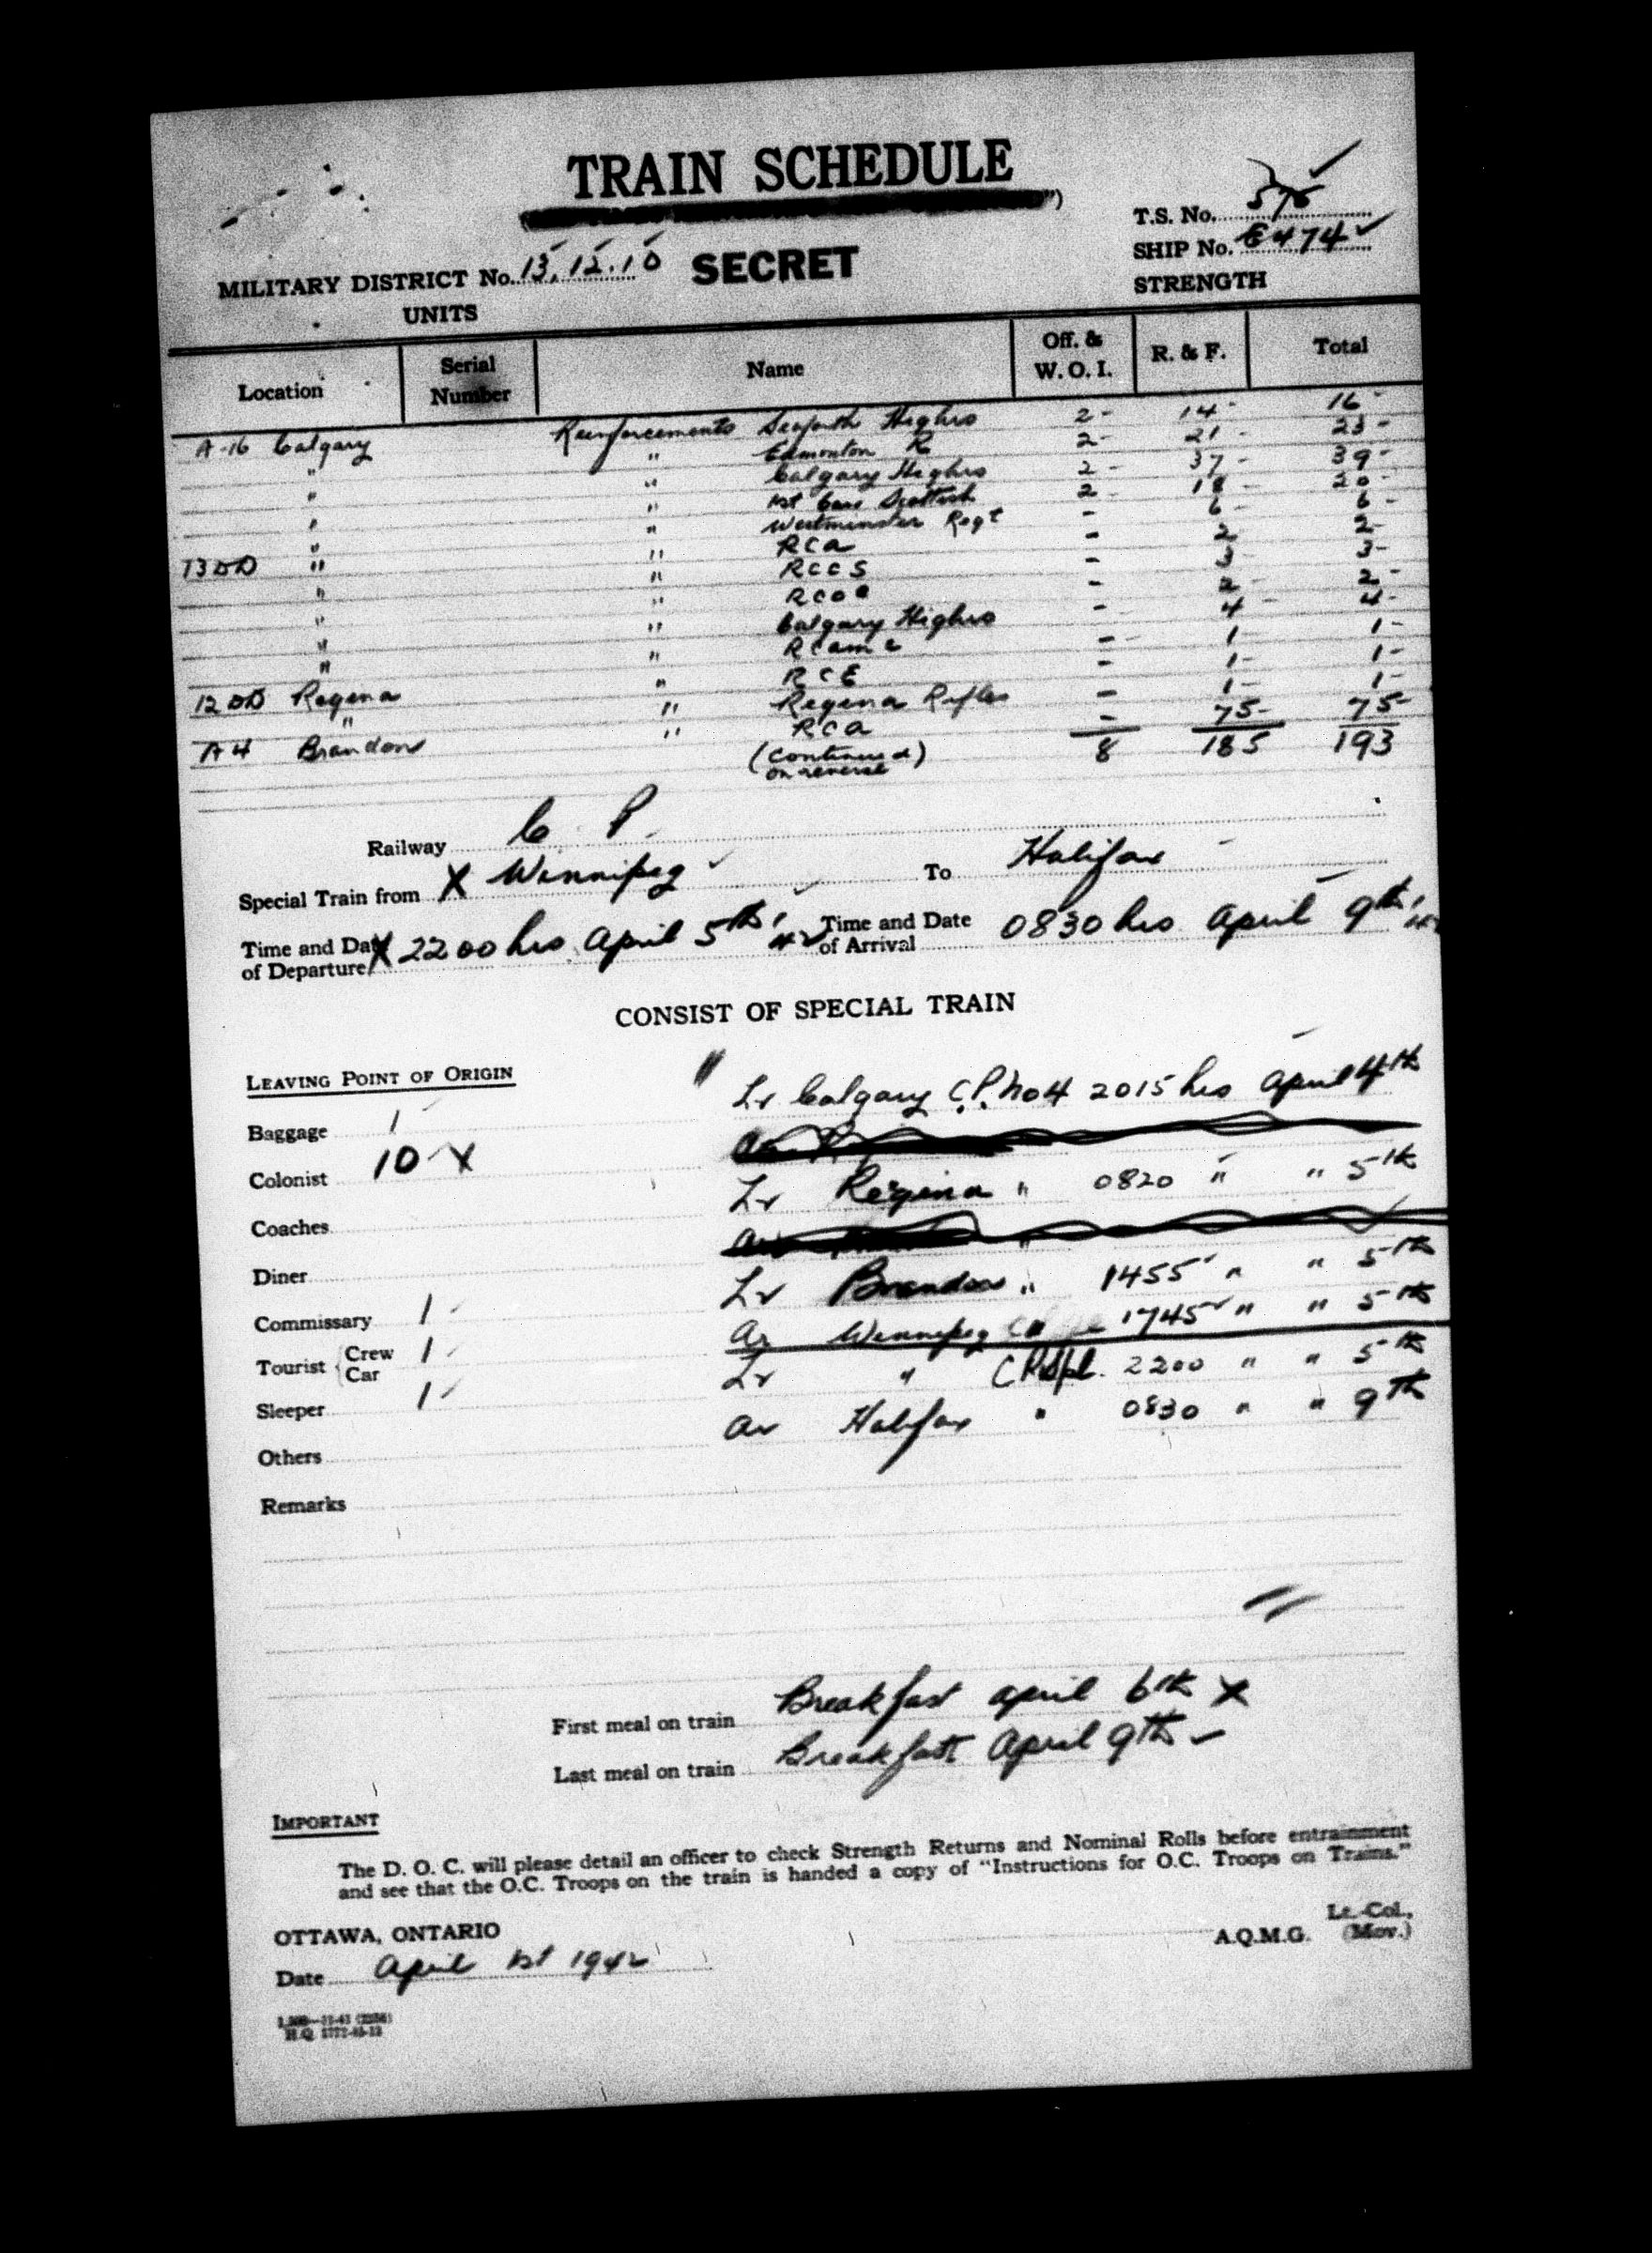 TRAIN SCHEDULE
T.S. No. 576
MILITARY DISTRICT No. 13, 12, 10 SECRET SHIP No. E474
UNITS STRENGTH
Location Serial Number Name Off. & W.O.I. R. & F. Total
A-16 Calgary Reinforcements Seaforth Highrs 2 - 14 - 16 -
" " Edmonton R 2 - 21 - 23 -
" " Calgary Highrs 2 - 37 - 39 -
" " 1st Can Scottish 2 - 18 - 20 -
" " Westminster Regt - 6 - 6 -
13 DD " " RCA - 2 2 -
" " RCCS - 3 - 3 -
" " RCOC - 2 - 2 -
" " Calgary Highrs - 4 - 4 -
" " RCAMC - 1 - 1 -
12 DD Regina " RCE - 1 - 1 -
" " Regina Rifles - 1 - 1 -
A4 Brandon " RCA - 75 - 75 -
(Continued on reverse) 8 185 193
Railway C. P.
Special Train from X Winnipeg To Halifax
Time and Date of Departure X 2200 hrs April 5th, 42 Time and Date of Arrival 0830 hrs April 9th,
CONSIST OF SPECIAL TRAIN
LEAVING POINT OF ORIGIN
Lv Calgary C.P. No 4 2015 hrs April 4th
Baggage 1
Colonist 10 X
Lv Regina " 0820 " " 5th
Coaches
Diner
Lv Brandon " 1455 " " 5th
Commissary 1
Ar Winnipeg 1745 " " 5th
Tourist { Crew Car 1
Lv " C P Spl. 2200 " " 5th
Sleeper 1
Ar Halifax " 0830 " " 9th
Others
Remarks
First meal on train Breakfast April 6th X
Last meal on train Breakfast April 9th
IMPORTANT
The D. O. C. will please detail an officer to check Strength Returns and Nominal Rolls before entrainment
and see that the O.C. Troops on the train is handed a copy of "Instructions for O.C. Troops on Trains."
Lt.-Col.,
OTTAWA, ONTARIO A.Q.M.G. (Mov.)
Date April 1st 1942